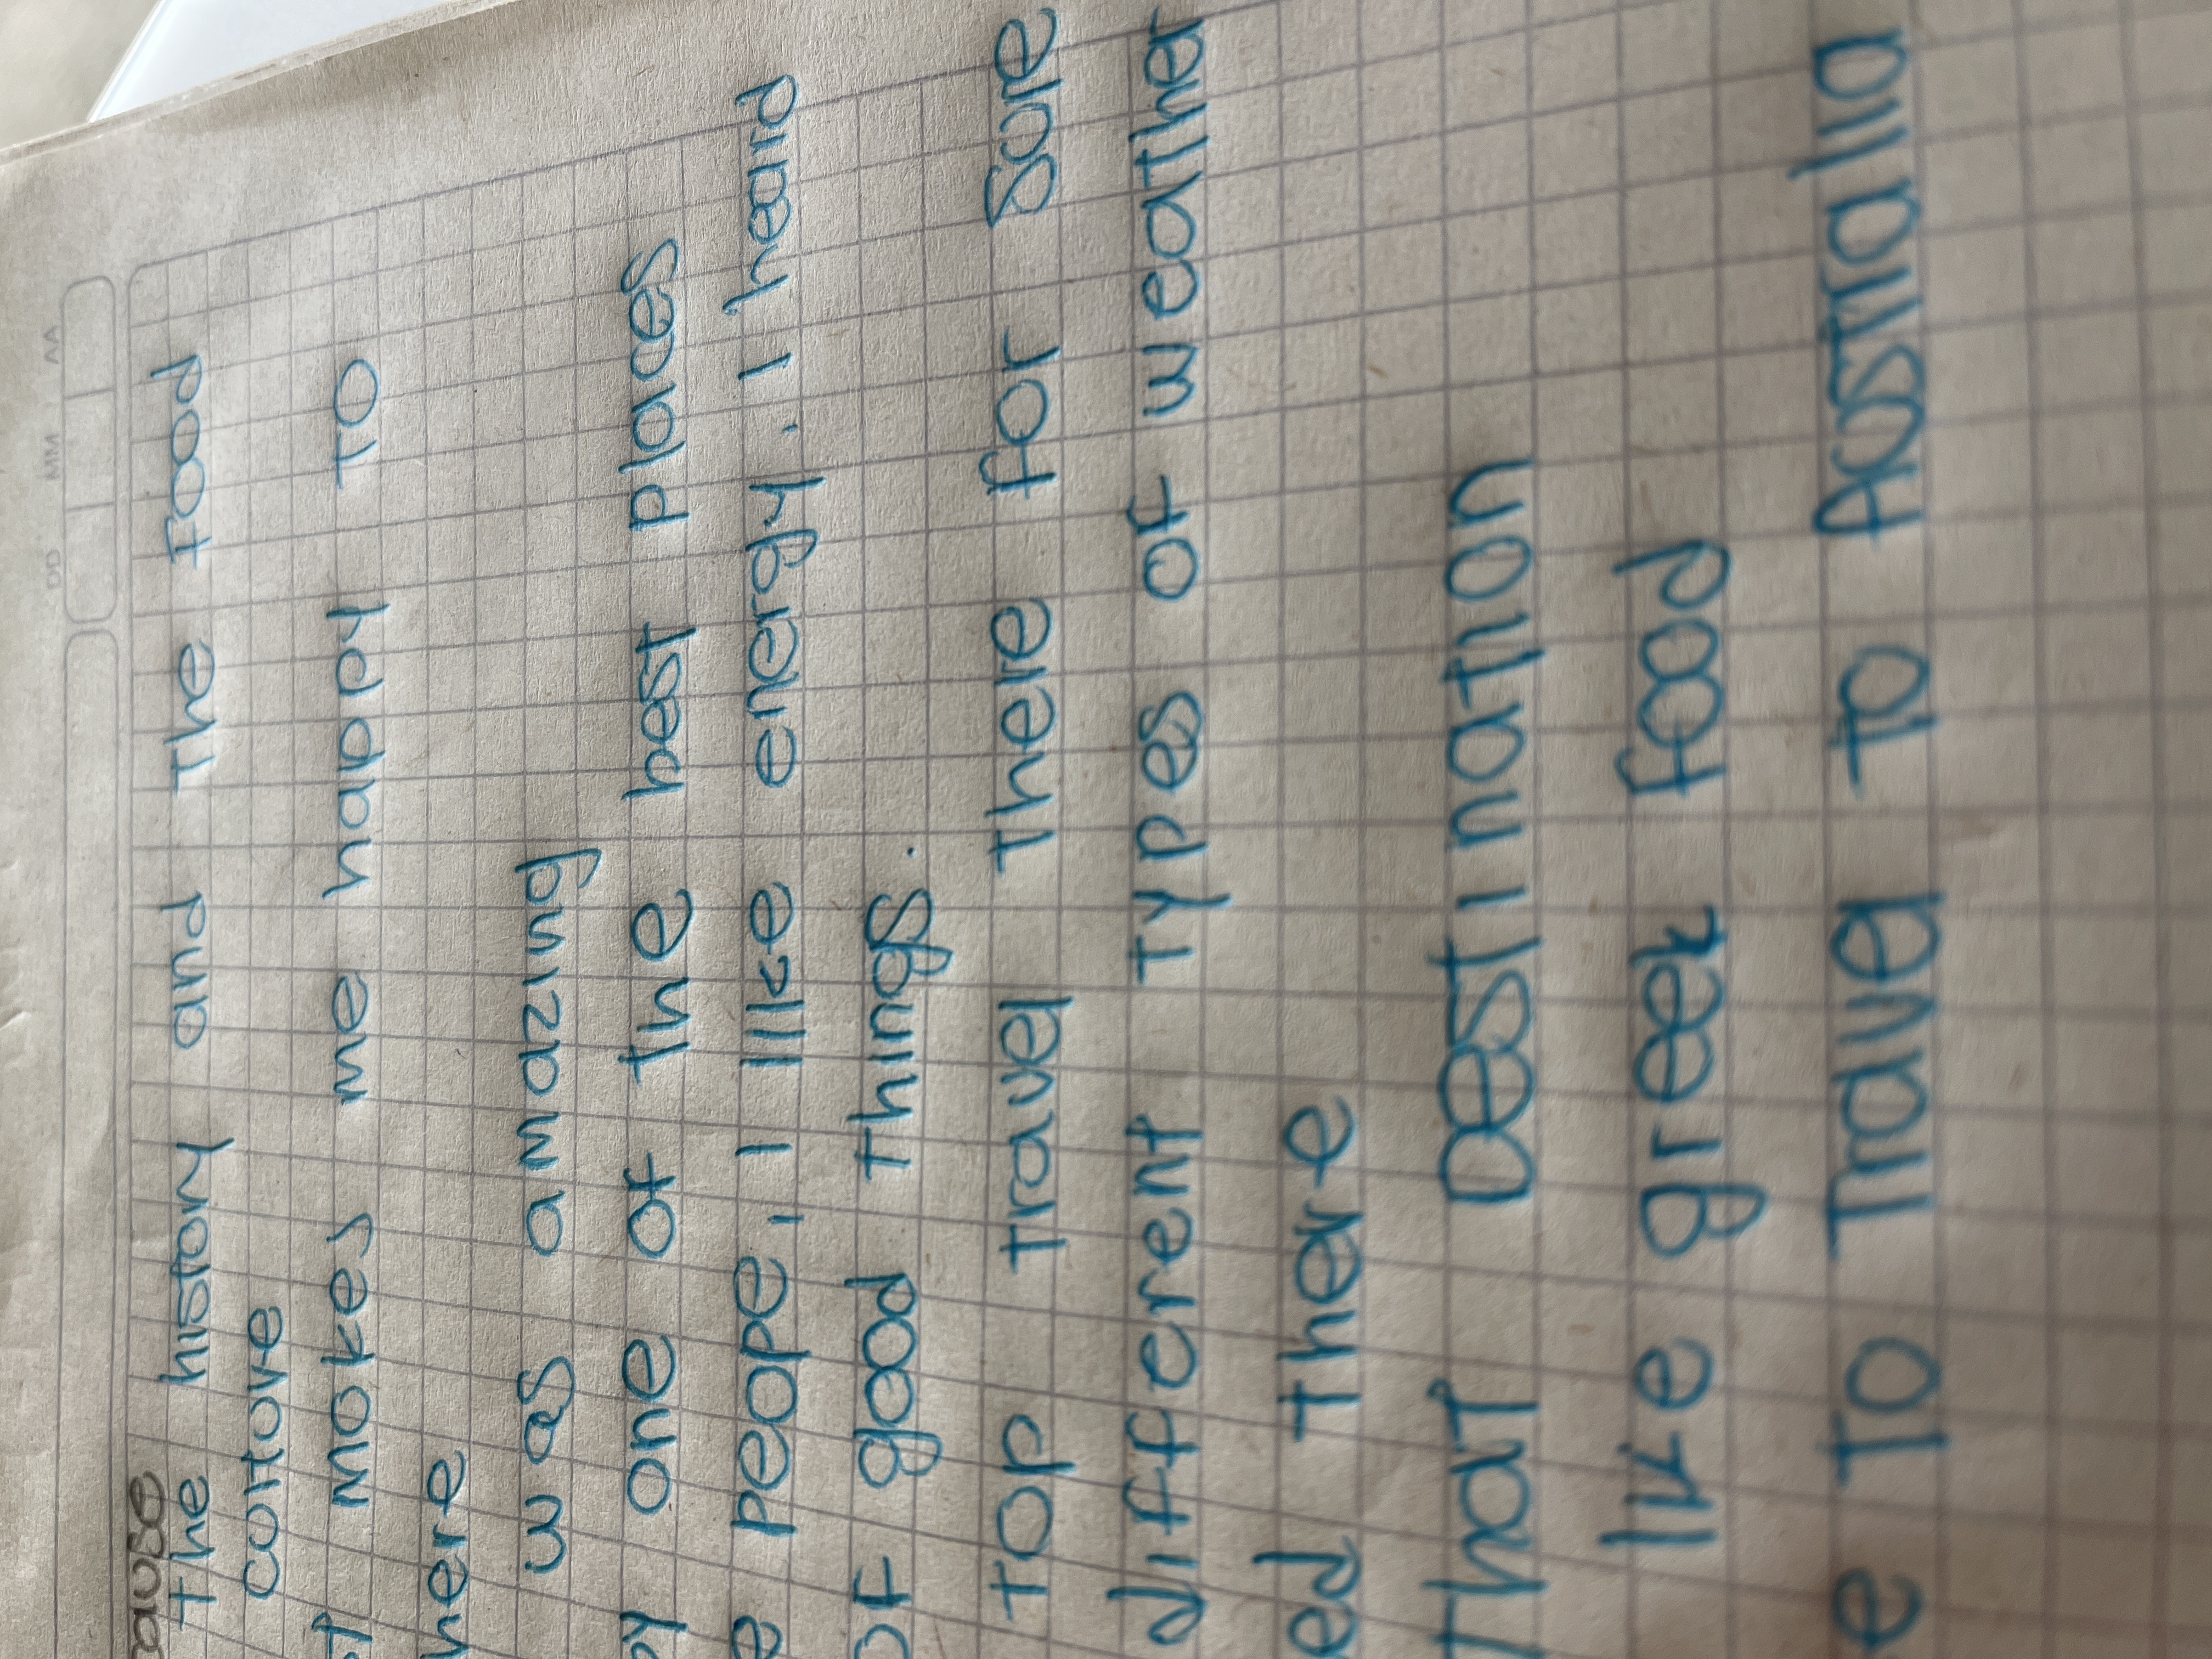 DD MM AA
the history and the food
culture
makes me happy to
here
was amazing
one of the best places
people, I like energy. I heard
of good things.
top travel there for sure
different types of weather
ed there
that Destination
like greek food
e to Travel to Australia